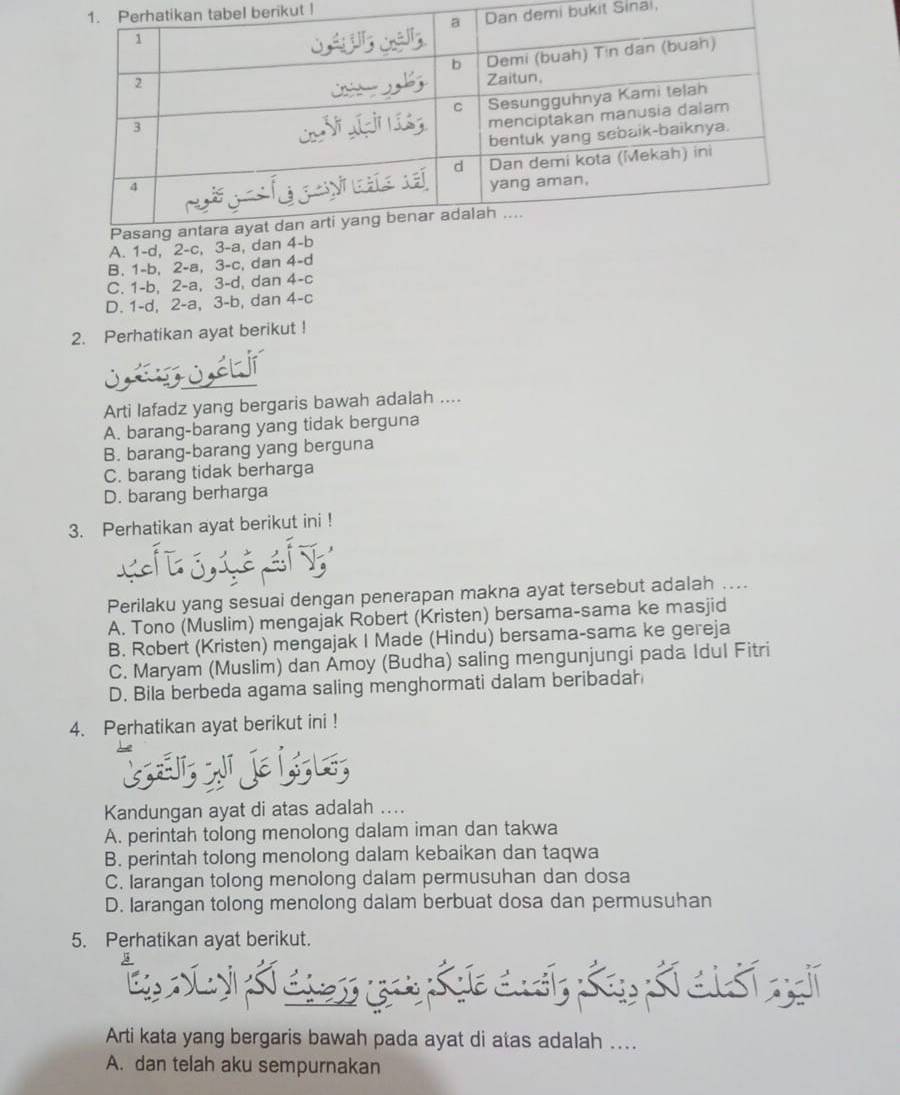 1. Perhatikan tabel berikut !
1 وَالتِّينِ وَالزَّيْتُونِ a Dan demi bukit Sinai,
2 وَطُورِ سِينِينَ b Demi (buah) Tin dan (buah)
Zaitun,
3 وَهَٰذَا ٱلْبَلَدِ ٱلْأَمِينِ c Sesungguhnya Kami telah
menciptakan manusia dalam
bentuk yang sebaik-baiknya.
4 لَقَدْ خَلَقْنَا ٱلْإِنْسَٰنَ فِىٓ أَحْسَنِ تَقْوِيمٍ d Dan demi kota (Mekah) ini
yang aman,
Pasang antara ayat dan arti yang benar adalah ....
A. 1-d, 2-c, 3-a, dan 4-b
B. 1-b, 2-a, 3-c, dan 4-d
C. 1-b, 2-a, 3-d, dan 4-c
D. 1-d, 2-a, 3-b, dan 4-c
2. Perhatikan ayat berikut !
وَيَمْنَعُونَ ٱلْمَاعُونَ
Arti lafadz yang bergaris bawah adalah ....
A. barang-barang yang tidak berguna
B. barang-barang yang berguna
C. barang tidak berharga
D. barang berharga
3. Perhatikan ayat berikut ini !
وَلَآ أَنتُمْ عَٰبِدُونَ مَآ أَعْبُدُ
Perilaku yang sesuai dengan penerapan makna ayat tersebut adalah ....
A. Tono (Muslim) mengajak Robert (Kristen) bersama-sama ke masjid
B. Robert (Kristen) mengajak I Made (Hindu) bersama-sama ke gereja
C. Maryam (Muslim) dan Amoy (Budha) saling mengunjungi pada Idul Fitri
D. Bila berbeda agama saling menghormati dalam beribadah
4. Perhatikan ayat berikut ini !
وَتَعَاوَنُوا۟ عَلَى ٱلْبِرِّ وَٱلتَّقْوَىٰ ۖ
Kandungan ayat di atas adalah ....
A. perintah tolong menolong dalam iman dan takwa
B. perintah tolong menolong dalam kebaikan dan taqwa
C. larangan tolong menolong dalam permusuhan dan dosa
D. larangan tolong menolong dalam berbuat dosa dan permusuhan
5. Perhatikan ayat berikut.
ٱلْيَوْمَ أَكْمَلْتُ لَكُمْ دِينَكُمْ وَأَتْمَمْتُ عَلَيْكُمْ نِعْمَتِى وَرَضِيتُ لَكُمُ ٱلْإِسْلَٰمَ دِينًا ۚ
Arti kata yang bergaris bawah pada ayat di atas adalah ....
A. dan telah aku sempurnakan